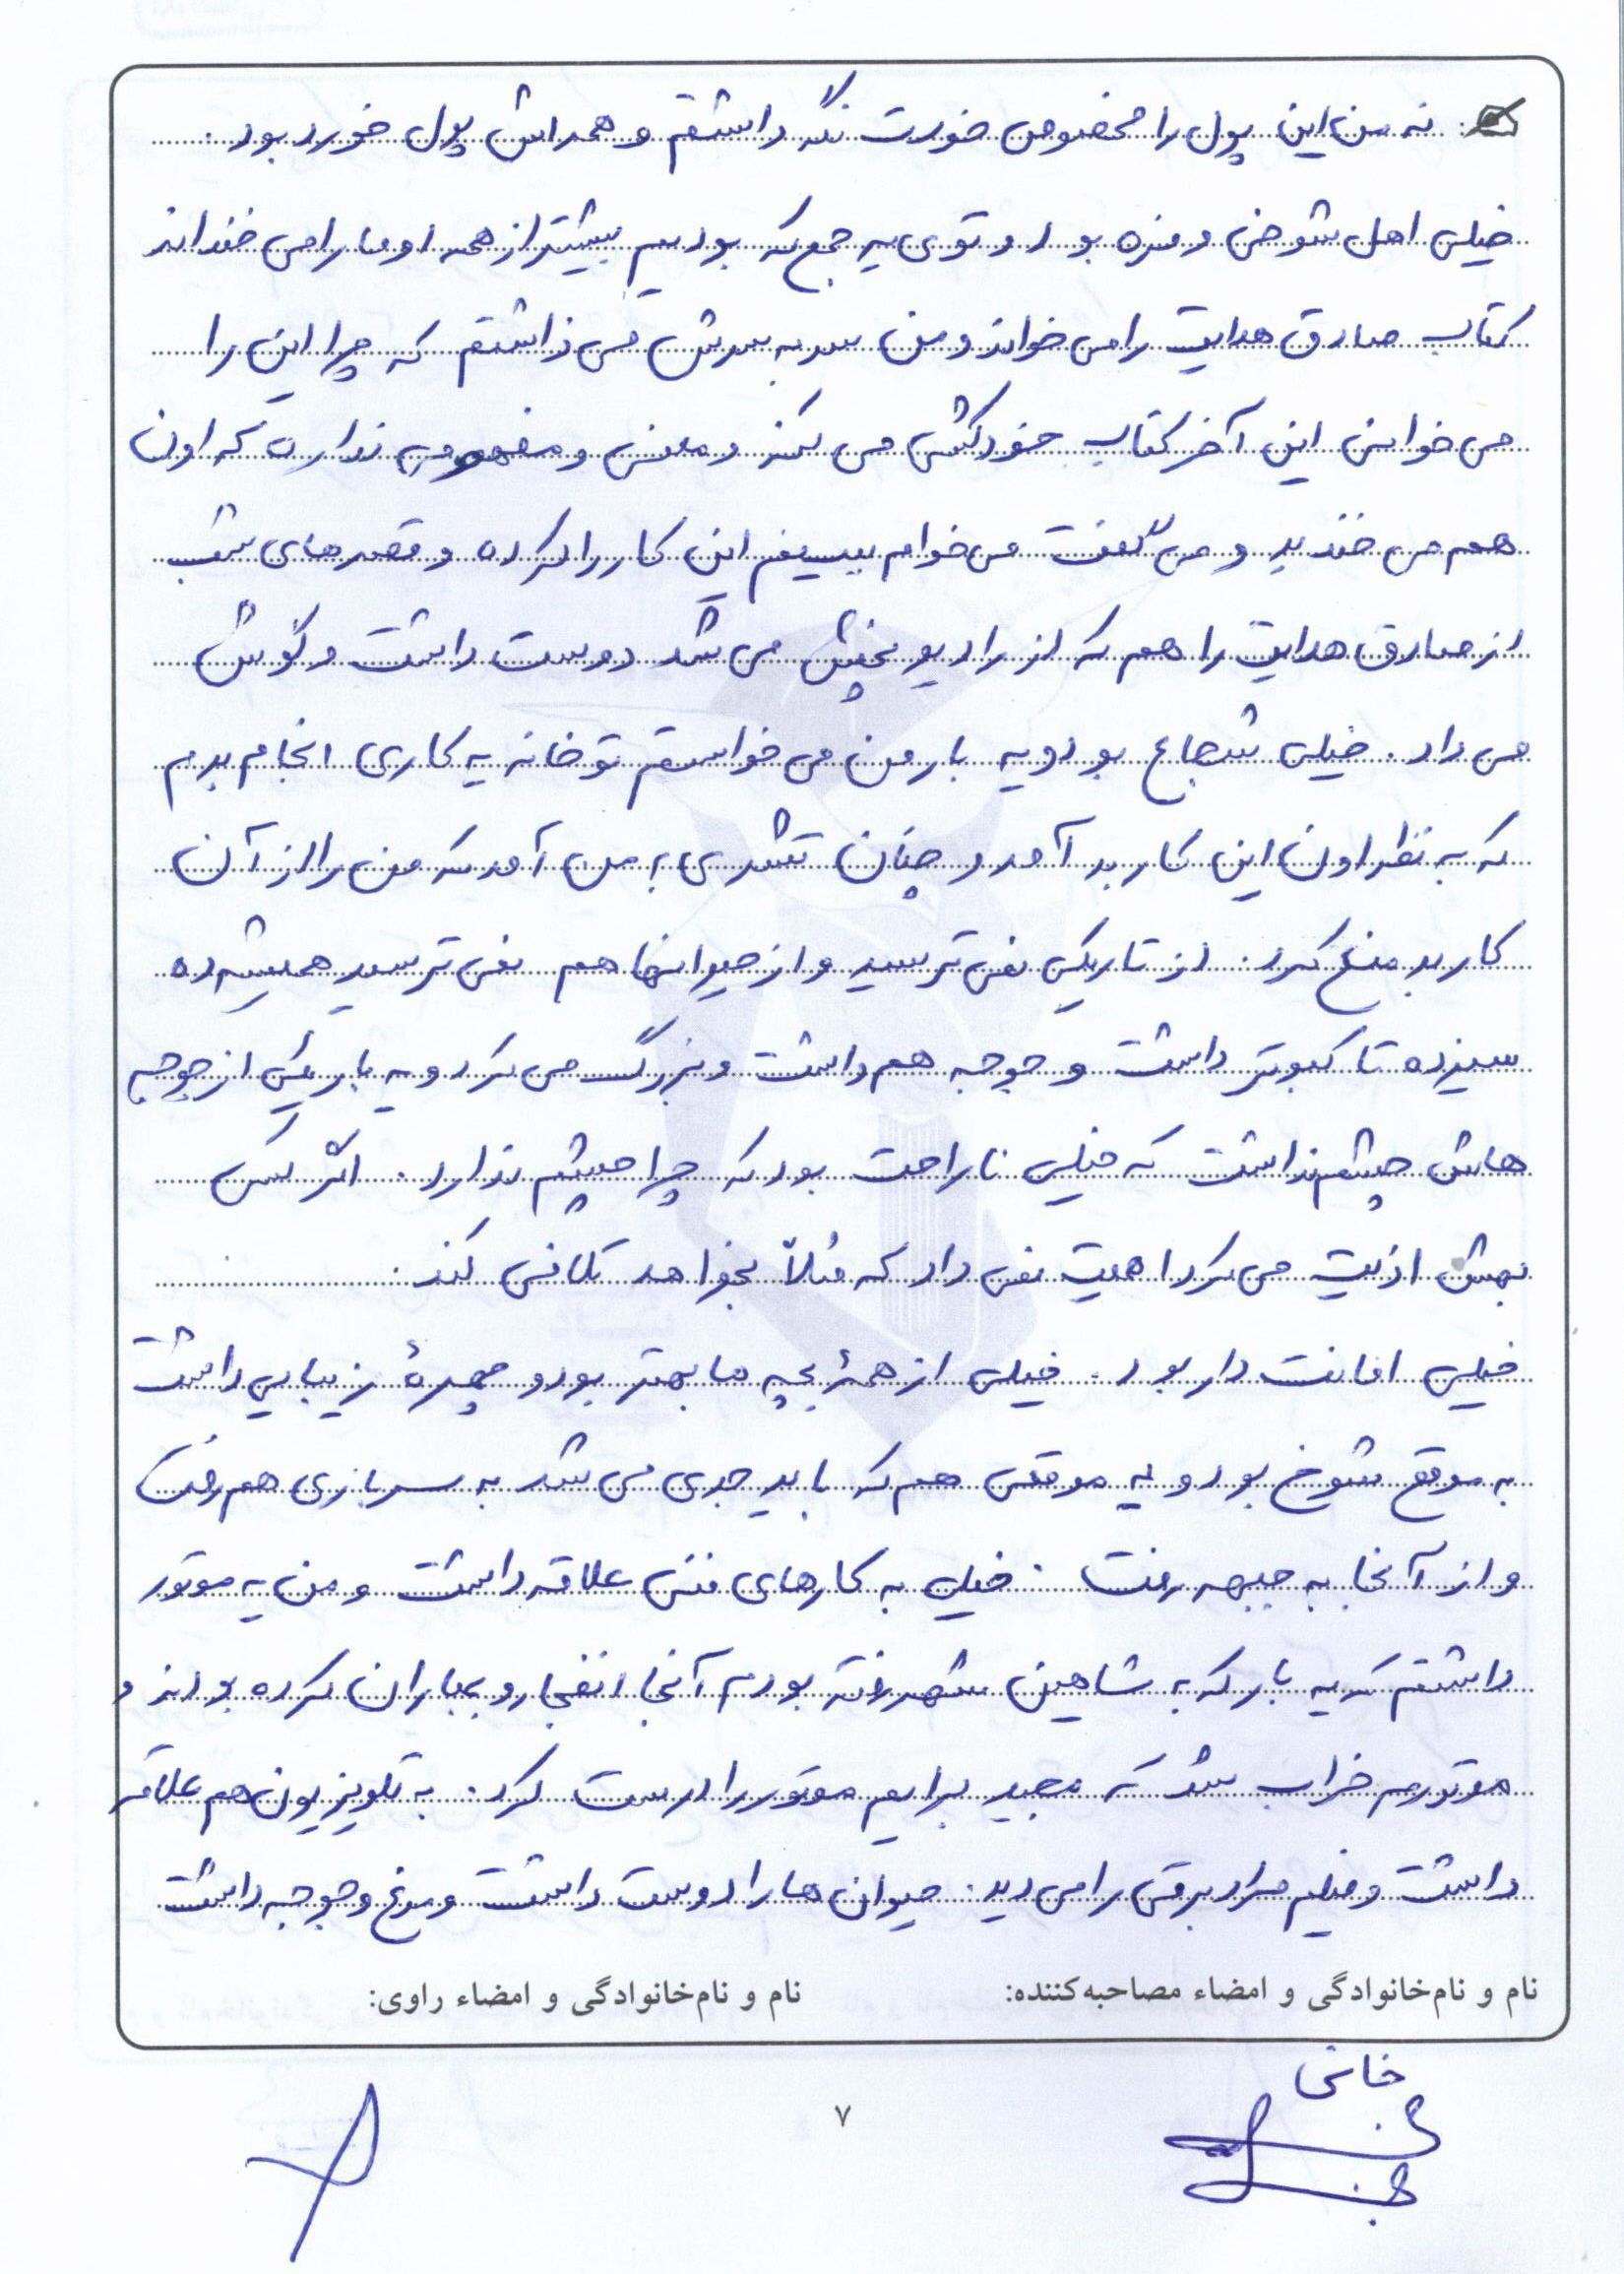 نه من این پول را مخصوص خودت نگه داشتم و همه‌اش پول خورد بود.
خیلی اهل شوخی و مزه بود و توی یه جمع که بودیم بیشتر از همه او ما را می خنداند
کتاب صادق هدایت را می خواند و من سر به سرش می ذاشتم که چرا این را
می خوانی این آخر کتاب خودکشی می کند و معنی و مفهومی نداره که اون
هم می خندید و می گفت می خوام ببینم این کار را کرده و قصه های شب
از صادق هدایت را هم که از رادیو پخش می شد دوست داشت و گوش
می داد. خیلی شجاع بود و یه بار من می خواستم تو خانه یه کاری انجام بدم
که به نظر اون این کار بد آمد و چنان تشری به من آمد که من را از آن
کار بد منع کرد. از تاریکی نمی ترسید و از حیوانها هم نمی ترسید همیشه ده
سیزده تا کبوتر داشت و جوجه هم داشت و بزرگ می کرد و یه بار یکی از جوجه
هاش چشم نداشت که خیلی ناراحت بود که چرا چشم ندارد. اگر کسی
بهش اذیت می کرد اهمیت نمی داد که مثلاً بخواهد تلافی کند.
خیلی امانت دار بود. خیلی از همۀ بچه ها بهتر بود و چهرۀ زیبایی داشت
به موقع شوخ بود و یه موقعی هم که باید جدی می شد به سربازی هم رفت
و از آنجا به جبهه رفت. خیلی به کارهای فنی علاقه داشت و من یه موتور
داشتم که یه بار که به شاهین شهر رفته بودم آنجا انفجار و بمباران کرده بودند و
موتورم خراب شد که مجید برایم موتور را درست کرد. به تلویزیون هم علاقه
داشت و فیلم مراد برقی را می دید. حیوان ها را دوست داشت و مرغ و جوجه داشت
نام و نام‌خانوادگی و امضاء مصاحبه‌کننده: نام و نام‌خانوادگی و امضاء راوی:
خانی
۷